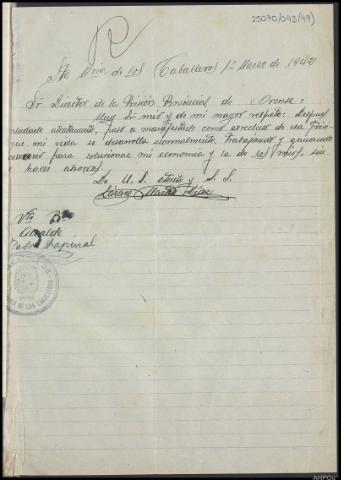 25070/043(49)
R
Sta Cruz de los Caballeros 1º Marzo de 19
Sr Director de la Prisión Provincial de Orense
Muy Sr mio y de mi mayor respeto: Despues
saludarle atentamente, paso a manifestarle como
que mi vida se desarrolla normalmente, trabajando y ganando
para solucionar mi economia y la de los mios, sin
hacer ahorros.
De U. S. atento y S. S.
Vº Bº
Alcalde
Espinal
DE LOS CABALLEROS
AHPOu